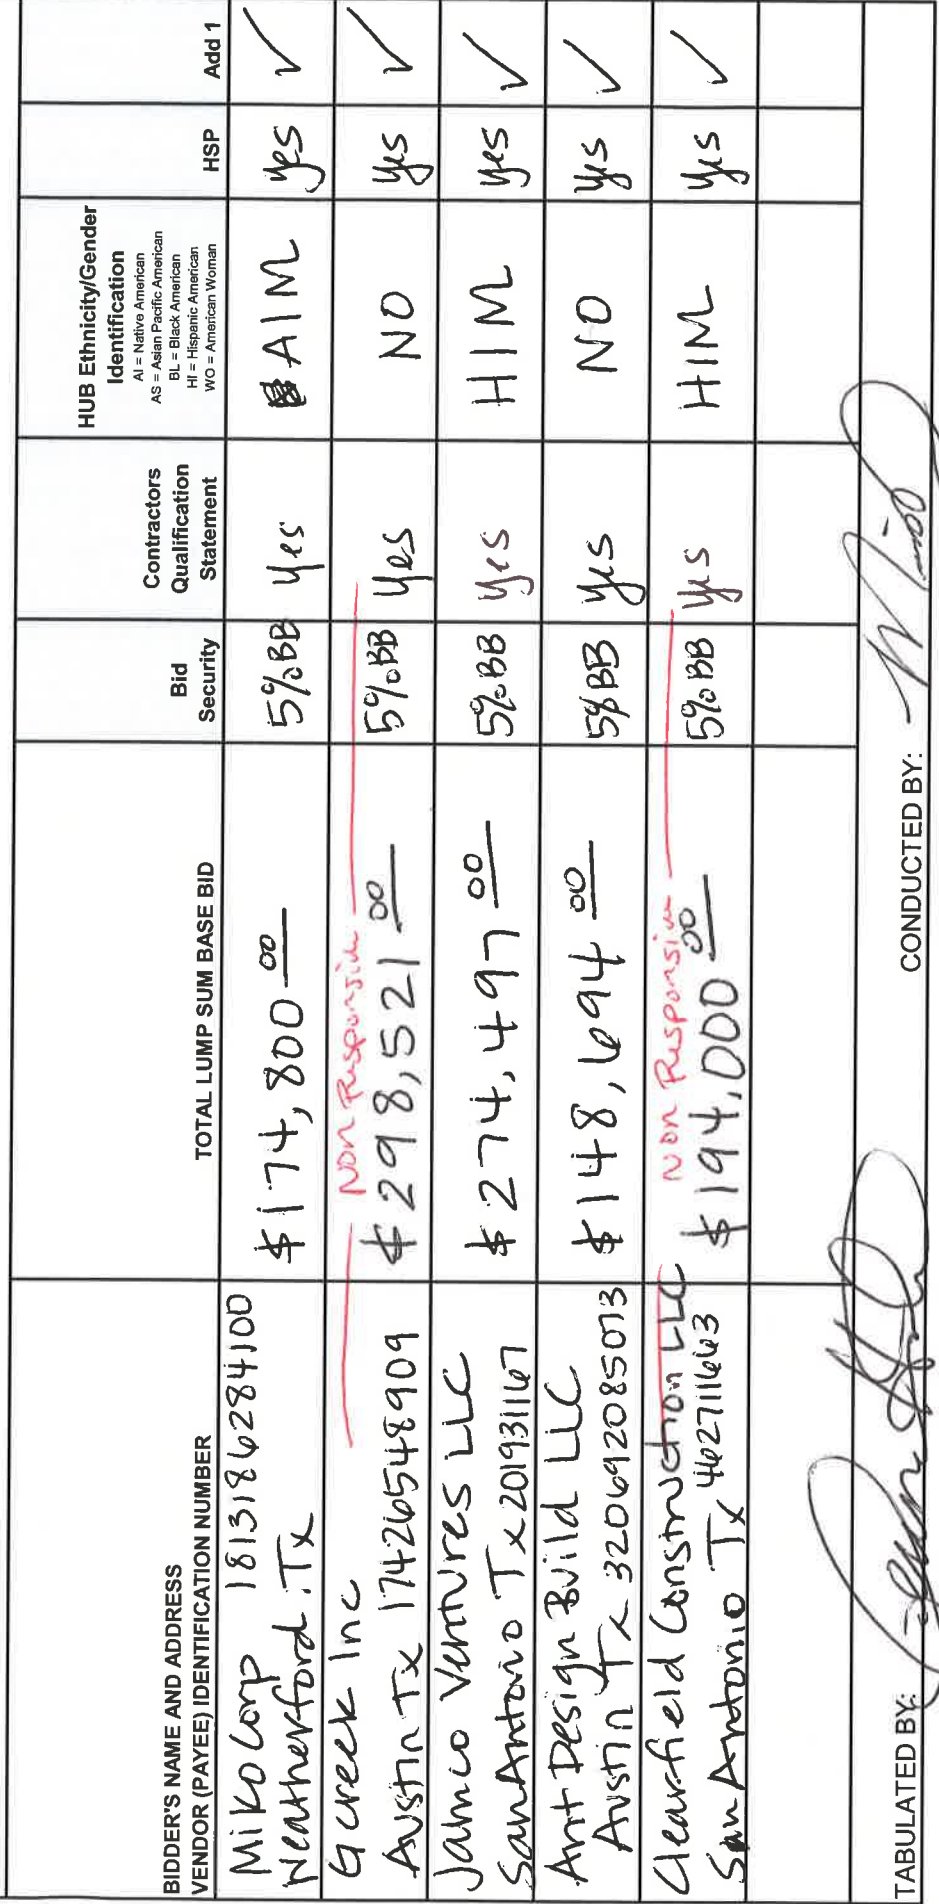 BIDDER'S NAME AND ADDRESS
VENDOR (PAYEE) IDENTIFICATION NUMBER
TOTAL LUMP SUM BASE BID
Bid
Security
Contractors
Qualification
Statement
HUB Ethnicity/Gender
Identification
AI = Native American
AS = Asian Pacific American
BL = Black American
HI = Hispanic American
WO = American Woman
HSP
Add 1
Miko Corp 1813186284100
Weatherford, Tx
$174,800 00
5%BB
Yes
AIM
yes
✓
G Creek Inc
Austin Tx 17426548909
Non Responsive
$298,521 00
5%BB
Yes
NO
yes
✓
Jamco Ventures LLC
San Antonio Tx 201931167
$274,497 00
5%BB
Yes
HIM
yes
✓
Ant Design Build LLC
Austin Tx 32069208507 3
$148,694 00
5%BB
Yes
NO
yes
✓
Clearfield Construction LLC
San Antonio Tx 462711663
Non Responsive
$194,000 00
5%BB
Yes
HIM
yes
✓
TABULATED BY:
CONDUCTED BY: